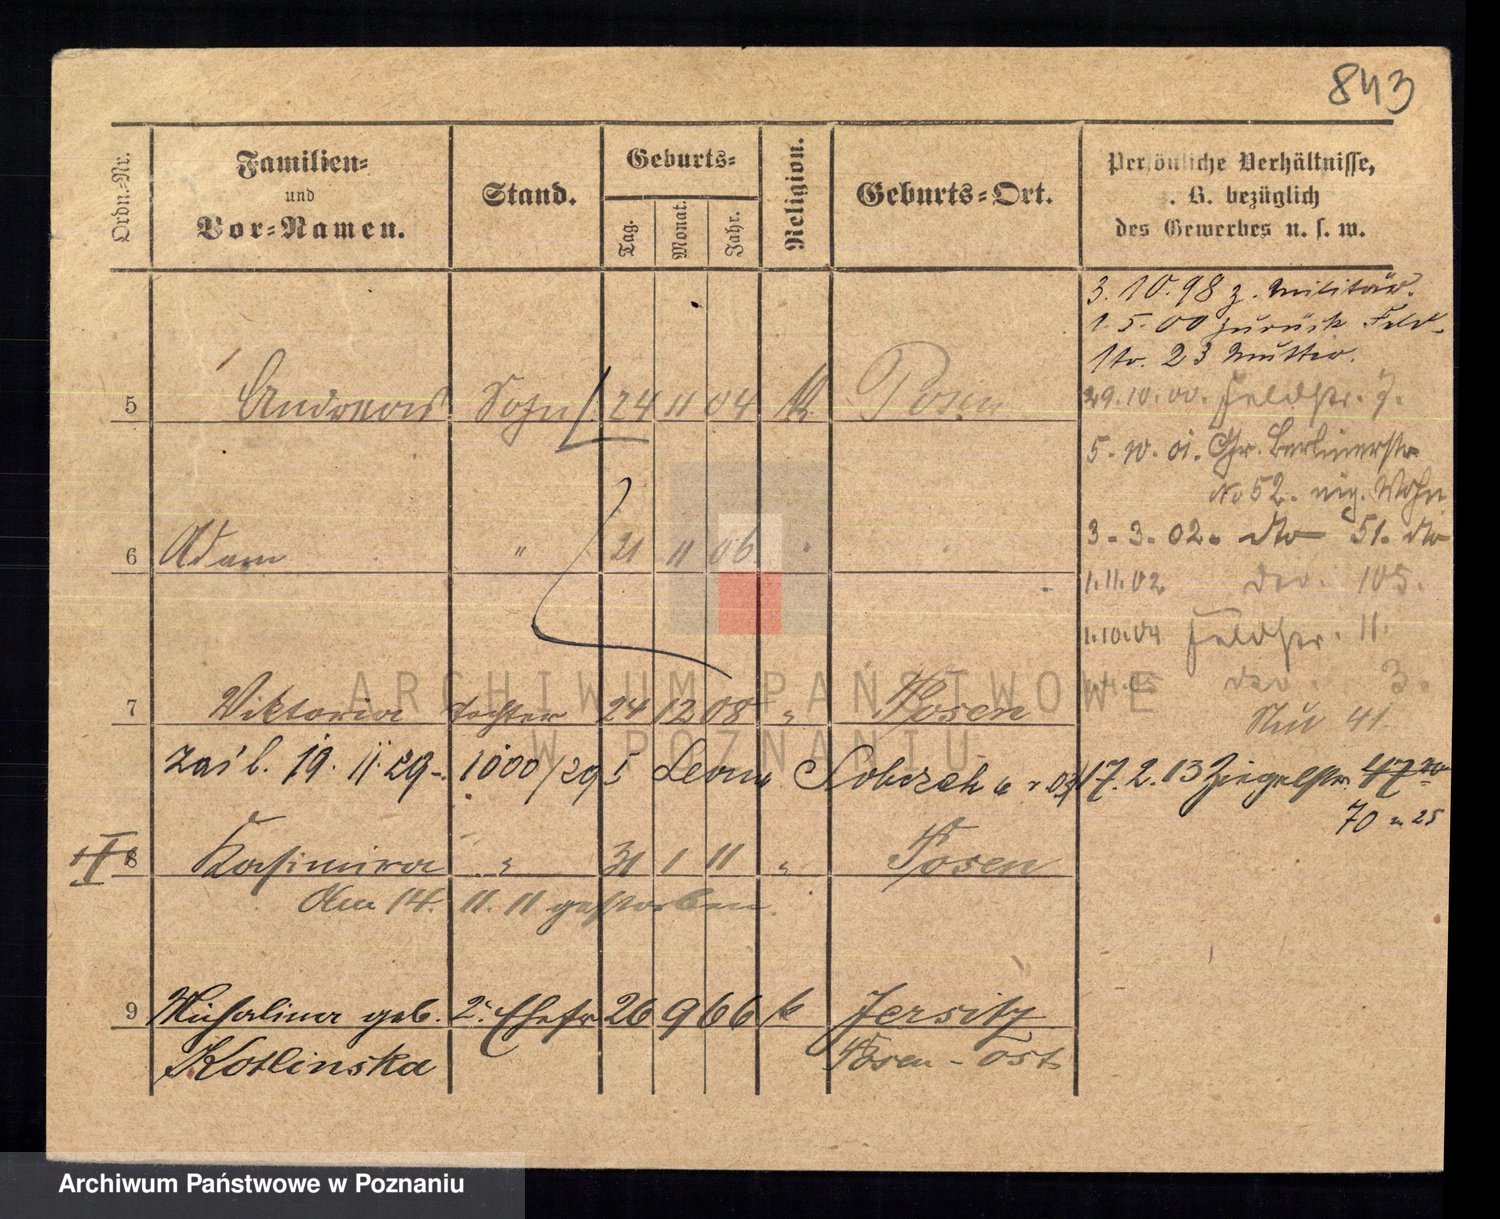 843
Ordn.-Nr.
Familien-
und
Vor-Namen.
Stand.
Geburts-
Tag.
Monat.
Jahr.
Religion.
Geburts-Ort.
Persönliche Verhältnisse,
. B. bezüglich
des Gewerbes u. s. w.
3. 10. 98 z. Militär.
1. 5. 00 zurück Feld-
str. 23 Mutter.
5 Andreas Sohn 24 11 04 k Posen
29. 10. 00. Feldstr. 7.
5. 10. 01. Gr. Berlinerstr
No 52. eig. Wohn
6 Adam " 21 11 06
3. 3. 02. dto 51. dto
1. 11. 02 do. 105.
1. 10. 04 Feldstr. 11.
do. 3.
7 Viktoria Tochter 24 12 08 " Posen
41
zaśl. 19. 11. 29. 1000/29 5 Leon Sobczak
17. 2. 13 Ziegelstr. 47
70 25
8 Kasimira " 31 1 11 " Posen
den 14. 11. 11 gestorben.
9 Michalina geb. 2. Ehefr 26 9 66 k Jersitz
Kotlinska Posen - Ost
ARCHIWUM PAŃSTWOWE
W POZNANIU
Archiwum Państwowe w Poznaniu